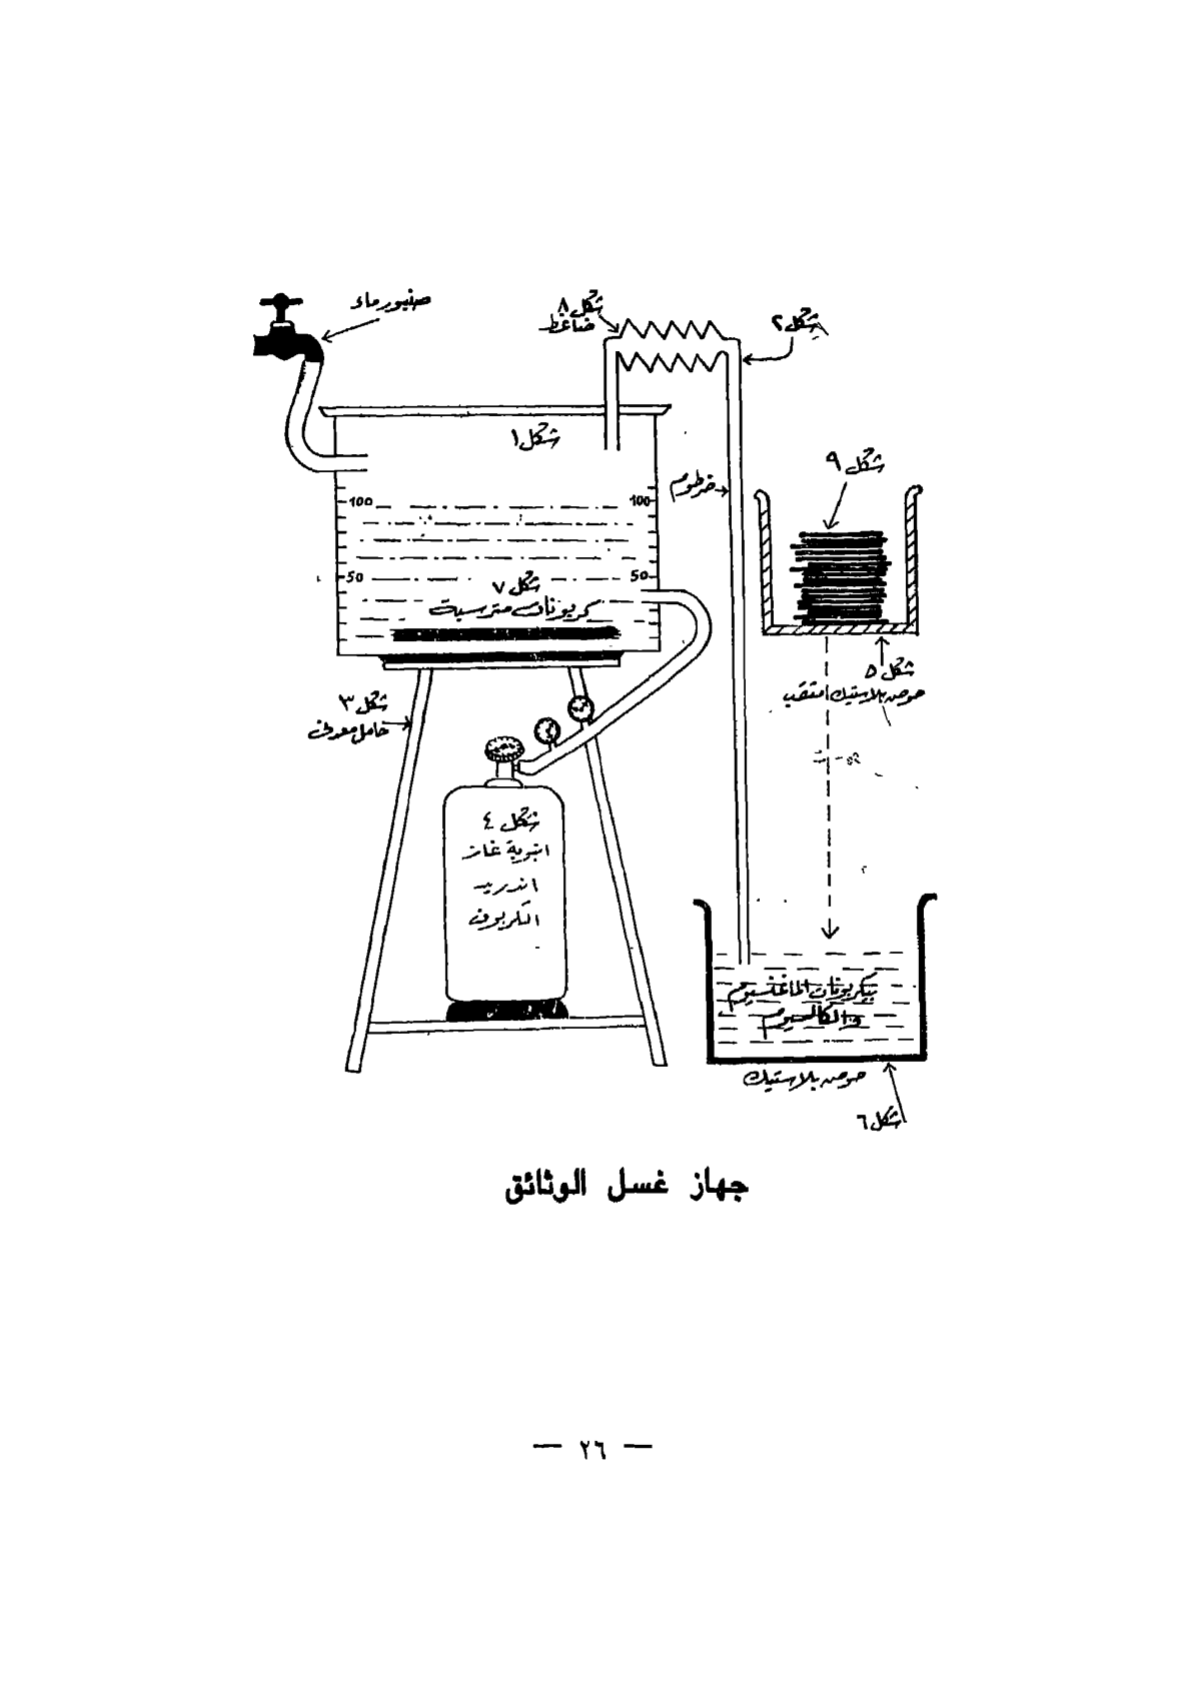 صنبور ماء
شكل ٨
ضاغط
شكل ٢
شكل ١
شكل ٩
خرطوم
100
100
50
50
شكل ٧
كربونات مترسبة
شكل ٥
حوض بلاستيك مثقب
شكل ٣
حامل معدني
شكل ٤
انبوبة غاز
اندريد
الكربون
بيكربونات الماغنسيوم
والكالسيوم
حوض بلاستيك
شكل ٦
جهاز غسل الوثائق
— ٢٦ —